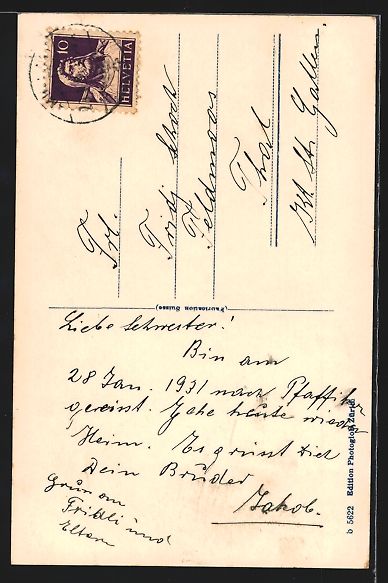 10
HELVETIA
Frl.
Fridj Schoch
Feldmoos
Thal
Kt. St. Gallen.
(Fabrication Suisse)
Liebe Schwester!
Bin am
28 Jan. 1931 nach
gereisst. Gehe heute wieder
Heim. Es grüsst Dich
Dein Bruder
Jakob.
Gruss an
Fridli und
Eltern
b 5622 Edition Photoglob Zürich